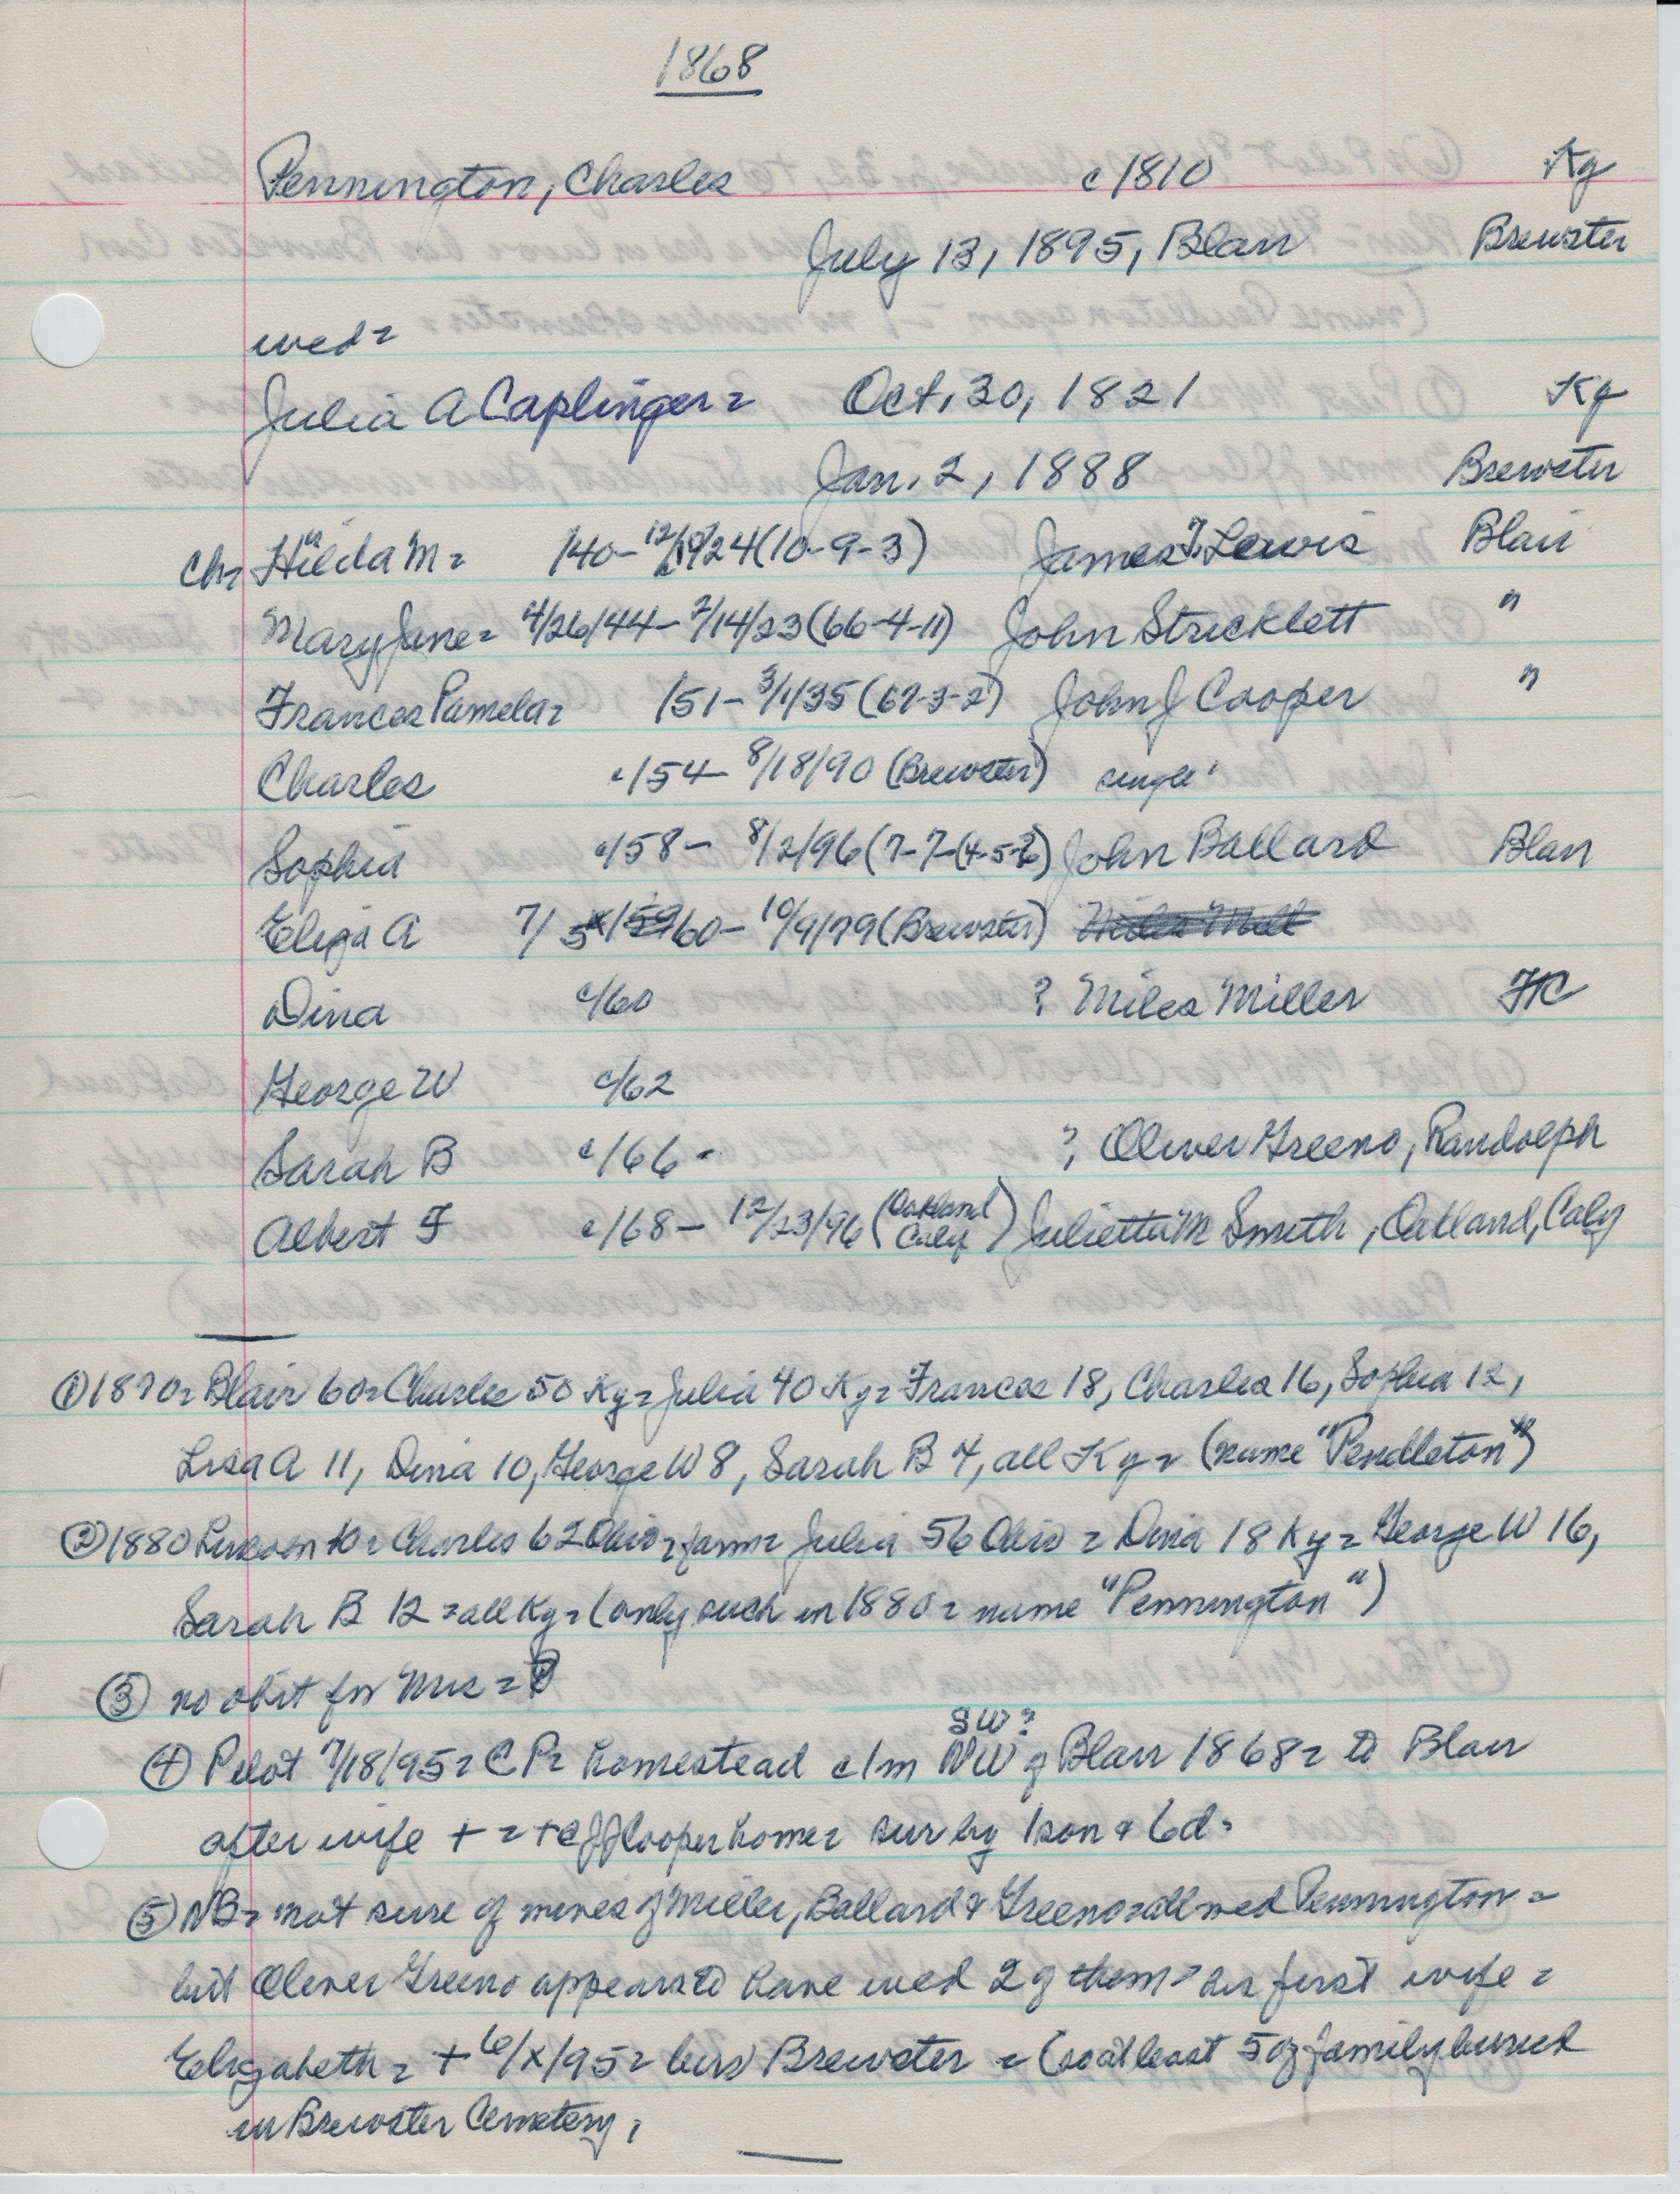 1868
Pennington, Charles c1810 Ky
July 13, 1895, Blair Brewster
wed=
Julia A Caplinger= Oct, 30, 1821 Ky
Jan. 2, 1888 Brewster
ch= Hilda M= /40- 12/19/24 (10-9-3) James T. Lewis Blair
Mary Jane= 4/26/44- 2/14/23 (66-4-11) John Stricklett "
Frances Pamela= /51- 3/1/35 (67-3-2) John J Cooper "
Charles c/54- 8/18/90 (Brewster) single
Sophia c/58- 8/2/96 (7-7-(4-5-6) John Ballard Blair
Eliza A 7/ /60- 10/9/79 (Brewster)
Dina c/60 ? Miles Miller
George W c/62
Sarah B c/66- ?, Oliver Greeno, Randolph
Albert F c/68- 12/23/96 (Oakland Calif) Julietta M Smith, Oakland, Calif
① 1870= Blair 60= Charles 50 Ky= Julia 40 Ky= Frances 18, Charles 16, Sophia 12,
Lisa A 11, Dina 10, George W 8, Sarah B 4, all Ky= (name "Pendleton")
② 1880 10= Charles 62 Ohio= farm= Julia 56 Ohio= Dina 18 Ky= George W 16,
Sarah B 12= all Ky= (only such in 1880= name "Pennington")
③ no obit for Mrs=
④ Pilot 7/18/95= C P= homestead c/m SW? NW of Blair 1868= to Blair
after wife += +@ JJ Cooper home= sur by 1 son & 6d=
⑤ NB= not sure of wives of Miller, Ballard & Greeno= all wed Pennington=
but Oliver Greeno appears to have wed 2 of them= his first wife=
Elizabeth= + 6/x/95= bur Brewster= (so at least 5 of family buried
in Brewster Cemetery.